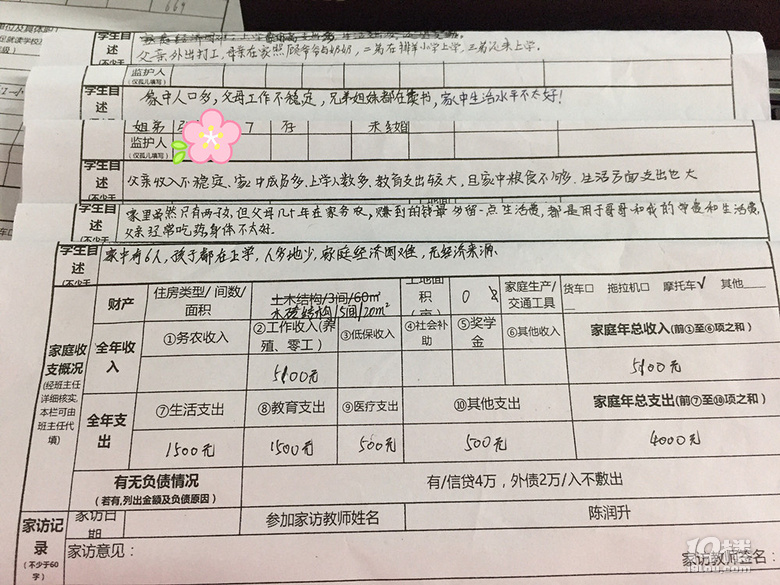 669
学生自述
父亲外出打工,母亲在家照顾爷爷与奶奶,二哥在小学上学,三哥上学。
监护人
(仅孤儿填写)
学生自述
家中人口多,父母工作不稳定,兄弟姐妹都在读书,家中生活水平不太好!
姐弟 7 存 未结婚
监护人
(仅孤儿填写)
学生自述
(不少于
父亲收入不稳定、家中成员多,上学人数多,教育支出较大,且家中粮食不够多.生活方面支出也大
家里虽然只有两孩,但父母几年在家务农,赚到的钱最多留一点生活费,都是用于哥哥和我的学费和生活费,
父亲经常吃药,身体不太好.
学生自述
家中有6人,孩子都在上学,人多地少,家庭经济困难,无经济来源.
财产 住房类型/间数/面积 土木结构/3间/60㎡ 木砖结构/5间/20m² 土地面积 0 家庭生产/交通工具 货车□ 拖拉机□ 摩托车√ 其他
家庭收支概况
(经班主任详细核实,本栏可由班主任代填)
全年收入 ①务农收入 ②工作收入(养殖、零工) ③低保收入 ④社会补助 ⑤奖学金 ⑥其他收入 家庭年总收入(前①至⑥项之和)
5800元 5800元
全年支出 ⑦生活支出 ⑧教育支出 ⑨医疗支出 ⑩其他支出 家庭年总支出(前⑦至⑩项之和)
1500元 1500元 500元 500元 4000元
有无负债情况
(若有,列出金额及负债原因)
有/信贷4万,外债2万/入不敷出
家访记录
(不少于60字)
家访日期 参加家访教师姓名 陈润升
家访意见: 家访教师签名: